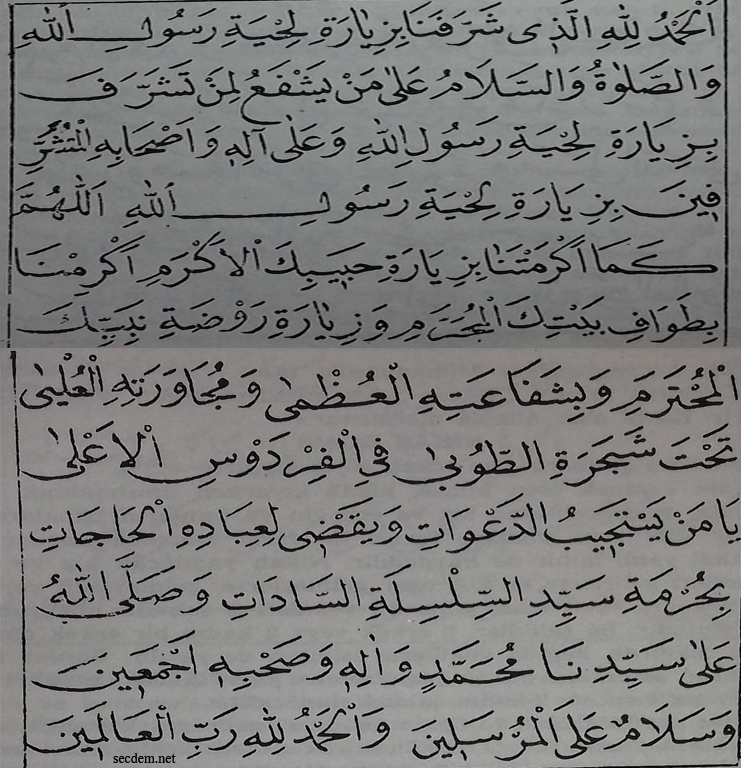 اَلْحَمْدُ لِلّٰهِ الَّذِى شَرَّفَنَا بِزِيَارَةِ لِحْيَةِ رَسُولِ اللّٰهِ
وَالصَّلٰوةُ وَالسَّلَامُ عَلٰى مَنْ يَشْفَعُ لِمَنْ تَشَرَّفَ
بِزِيَارَةِ لِحْيَةِ رَسُولِ اللّٰهِ وَعَلٰى آلِهِ وَاَصْحَابِهِ الْمُتَشَرِّ
فِينَ بِزِيَارَةِ لِحْيَةِ رَسُولِ اللّٰهِ اَللّٰهُمَّ
كَمَا اَكْرَمْتَنَا بِزِيَارَةِ حَبِيبِكَ الْاَكْرَمِ اَكْرِمْنَا
بِطَوَافِ بَيْتِكَ الْمُحَرَّمِ وَزِيَارَةِ رَوْضَةِ نَبِيِّكَ
الْمُحْتَرَمِ وَبِشَفَاعَتِهِ الْعُظْمٰى وَمُجَاوَرَتِهِ الْعُلْيٰى
تَحْتَ شَجَرَةِ الطُّوبٰى فِى الْفِرْدَوْسِ الْاَعْلٰى
يَا مَنْ يَسْتَجِيبُ الدَّعَوَاتِ وَيَقْضِى لِعِبَادِهِ الْحَاجَاتِ
بِحُرْمَةِ سَيِّدِ السِّلْسِلَةِ السَّادَاتِ وَصَلَّى اللّٰهُ
عَلٰى سَيِّدِنَا مُحَمَّدٍ وَاٰلِهِ وَصَحْبِهِ اَجْمَعِينَ
وَسَلَامٌ عَلَى الْمُرْسَلِينَ وَالْحَمْدُ لِلّٰهِ رَبِّ الْعَالَمِينَ
secdem.net